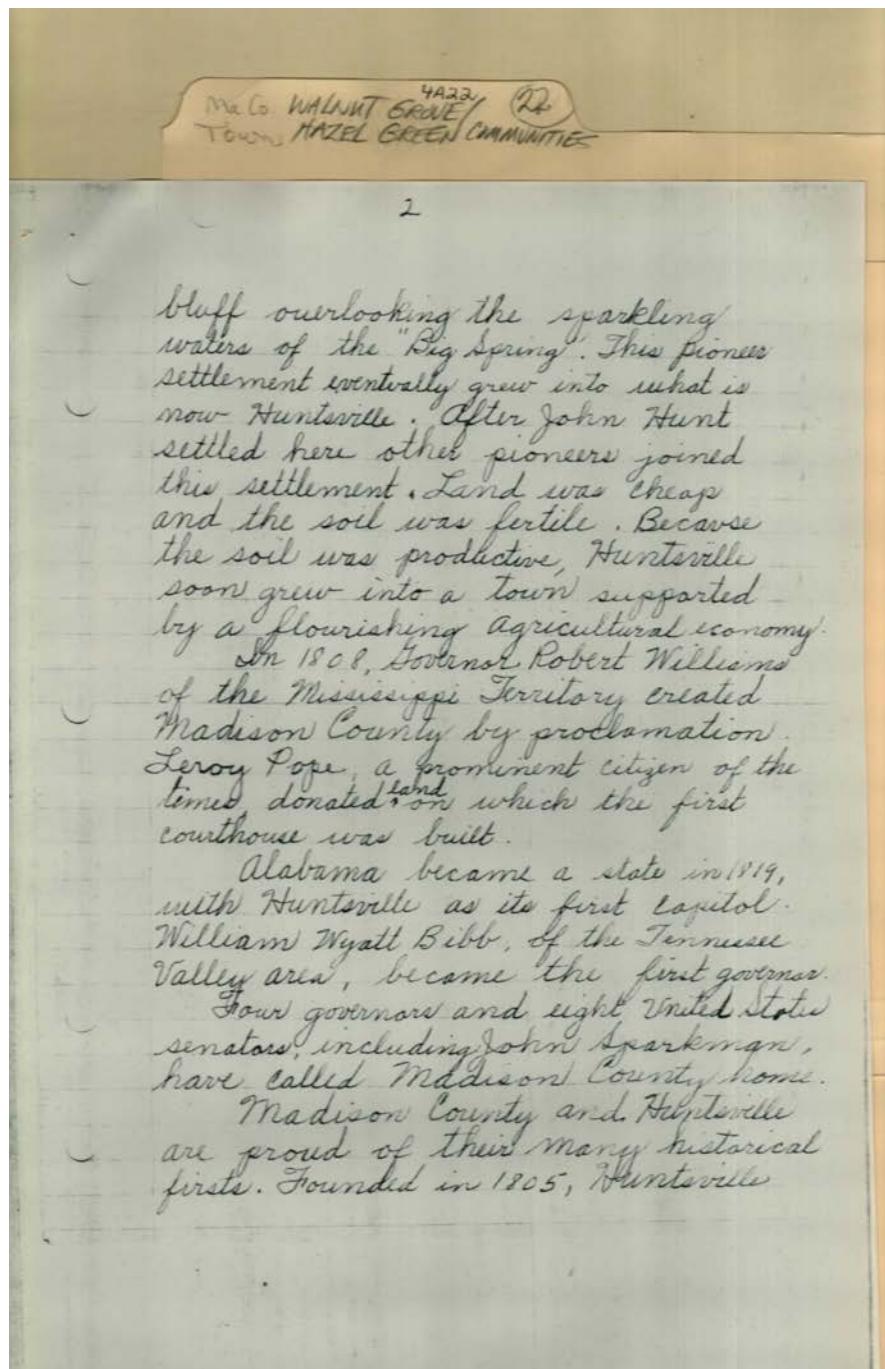 4A22
Ma Co. WALNUT GROVE/ 22
Town HAZEL GREEN COMMUNITIES
2
bluff overlooking the sparkling
waters of the "Big Spring". This pioneer
settlement eventually grew into what is
now Huntsville. After John Hunt
settled here other pioneers joined
this settlement. Land was cheap
and the soil was fertile. Because
the soil was productive, Huntsville
soon grew into a town supported
by a flourishing agricultural economy.
In 1808, Governor Robert Williams
of the Mississippi Territory created
Madison County by proclamation.
Leroy Pope, a prominent citizen of the
times, donated land on which the first
courthouse was built.
Alabama became a state in 1819,
with Huntsville as its first capitol.
William Wyatt Bibb, of the Tennessee
Valley area, became the first governor.
Four governors and eight United States
senators, including John Sparkman,
have called Madison County home.
Madison County and Huntsville
are proud of their many historical
firsts. Founded in 1805, Huntsville